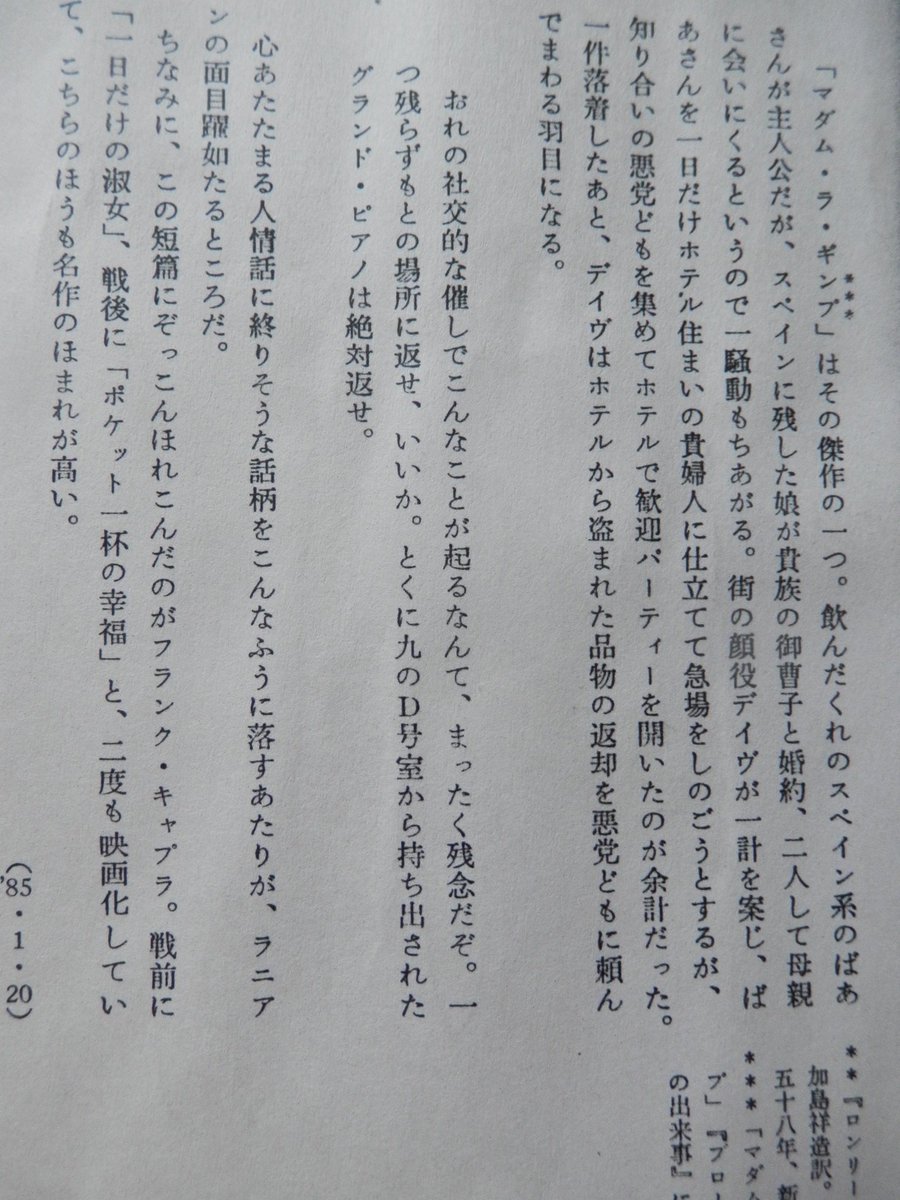 「マダム・ラ・ギンプ」はその傑作の一つ。飲んだくれのスペイン系のばあ
***
さんが主人公だが、スペインに残した娘が貴族の御曹子と婚約、二人して母親
に会いにくるというので一騒動もちあがる。街の顔役デイヴが一計を案じ、ば
あさんを一日だけホテル住まいの貴婦人に仕立てて急場をしのごうとするが、
知り合いの悪党どもを集めてホテルで歓迎パーティーを開いたのが余計だった。
一件落着したあと、デイヴはホテルから盗まれた品物の返却を悪党どもに頼ん
でまわる羽目になる。
おれの社交的な催しでこんなことが起るなんて、まったく残念だぞ。一
つ残らずもとの場所に返せ、いいか。とくに九のD号室から持ち出された
グランド・ピアノは絶対返せ。
心あたたまる人情話に終りそうな話柄をこんなふうに落すあたりが、ラニア
ンの面目躍如たるところだ。
ちなみに、この短篇にぞっこんほれこんだのがフランク・キャプラ。戦前に
「一日だけの淑女」、戦後に「ポケット一杯の幸福」と、二度も映画化してい
て、こちらのほうも名作のほまれが高い。
('85・1・20)
**『ロンリー
加島祥造訳。
五十八年、新
***「マダム
プ」『ブロー
の出来事』に